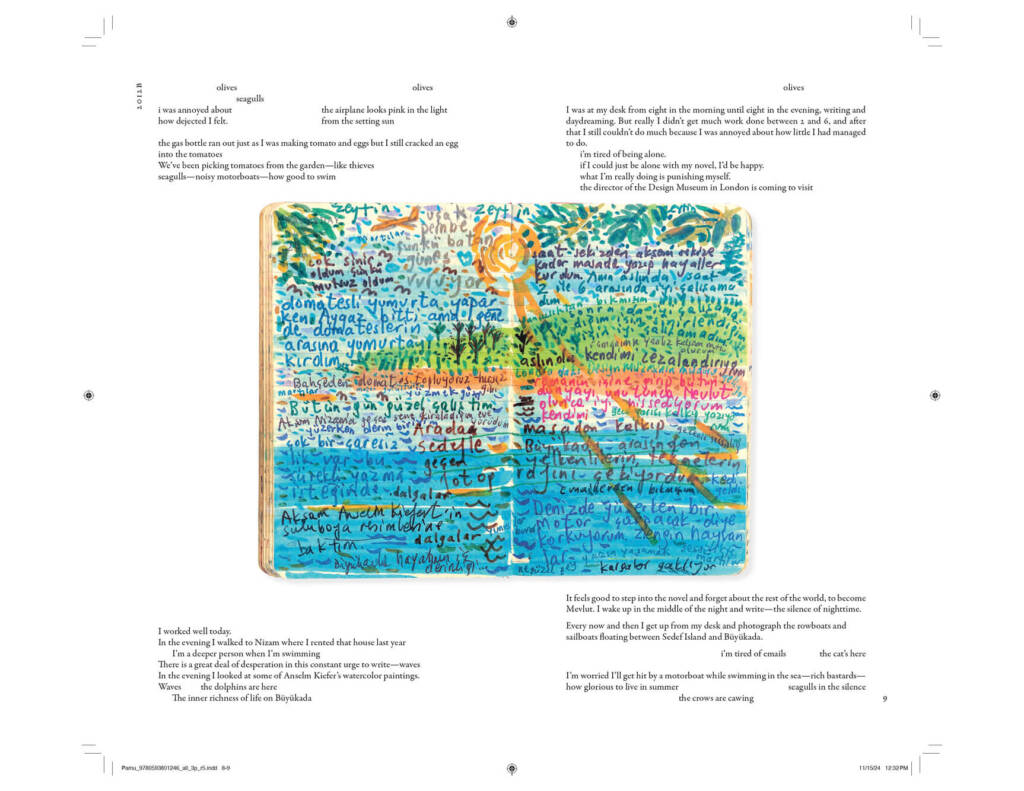 2012B
olives olives
seagulls
i was annoyed about
how dejected I felt.
the airplane looks pink in the light
from the setting sun
the gas bottle ran out just as I was making tomato and eggs but I still cracked an egg
into the tomatoes
We've been picking tomatoes from the garden—like thieves
seagulls—noisy motorboats—how good to swim
olives
I was at my desk from eight in the morning until eight in the evening, writing and
daydreaming. But really I didn't get much work done between 2 and 6, and after
that I still couldn't do much because I was annoyed about how little I had managed
to do.
i'm tired of being alone.
if I could just be alone with my novel, I'd be happy.
what I'm really doing is punishing myself.
the director of the Design Museum in London is coming to visit
zeytin zeytin
uçak
pembe
çünkü batan
güneş
vuruyor
çok sinir
oldum çünkü
mutsuz oldum
domatesli yumurta yapar
ken Aygaz bitti ama gene
de domateslerin
arasına yumurtayı
kırdım
Bahçeden domates topluyoruz hırsız
gibi
martılar
yüzmek güzel
Bütün gün güzel çalıştım
Akşam Nizama geçen sene kiraladığım eve
yürüdüm
yüzerken
çok bir çaresiz
lik var bu
sürekli yazma
isteğinde
dalgalar
Akşam Anselm Kiefer'in
suluboya resimlerine
baktım
dalgalar
Büyükada hayatının iç
derinliği
zeytin
saat sekizden akşam sekize
kadar masada yazıp hayaller
kurdum. Ama aslında saat
2 ile 6 arasında iyi çalışama
dım
aslında
kendimi cezalandırıyorum
romanın içine girip bütün
dünyayı unutunca Mevlut
olunca iyi hissediyorum
kendimi
Arada masadan kalkıp
Sedefle Büyükada arasından
geçen yelkenlilerin, teknelerin
fotoğrafını çekiyordum
kedi
geldi
emaillerden bıkmışım
Denizde yüzerken bir
motor çarpacak diye
korkuyorum zengin hayvan
lar
kargalar gaklıyor
I worked well today.
In the evening I walked to Nizam where I rented that house last year
I'm a deeper person when I'm swimming
There is a great deal of desperation in this constant urge to write—waves
In the evening I looked at some of Anselm Kiefer's watercolor paintings.
Waves the dolphins are here
The inner richness of life on Büyükada
It feels good to step into the novel and forget about the rest of the world, to become
Mevlut. I wake up in the middle of the night and write—the silence of nighttime.
Every now and then I get up from my desk and photograph the rowboats and
sailboats floating between Sedef Island and Büyükada.
i'm tired of emails the cat's here
I'm worried I'll get hit by a motorboat while swimming in the sea—rich bastards—
how glorious to live in summer seagulls in the silence
the crows are cawing
9
Pamu_9780593801246_all_3p_r5.indd 8-9
11/15/24 12:32 PM